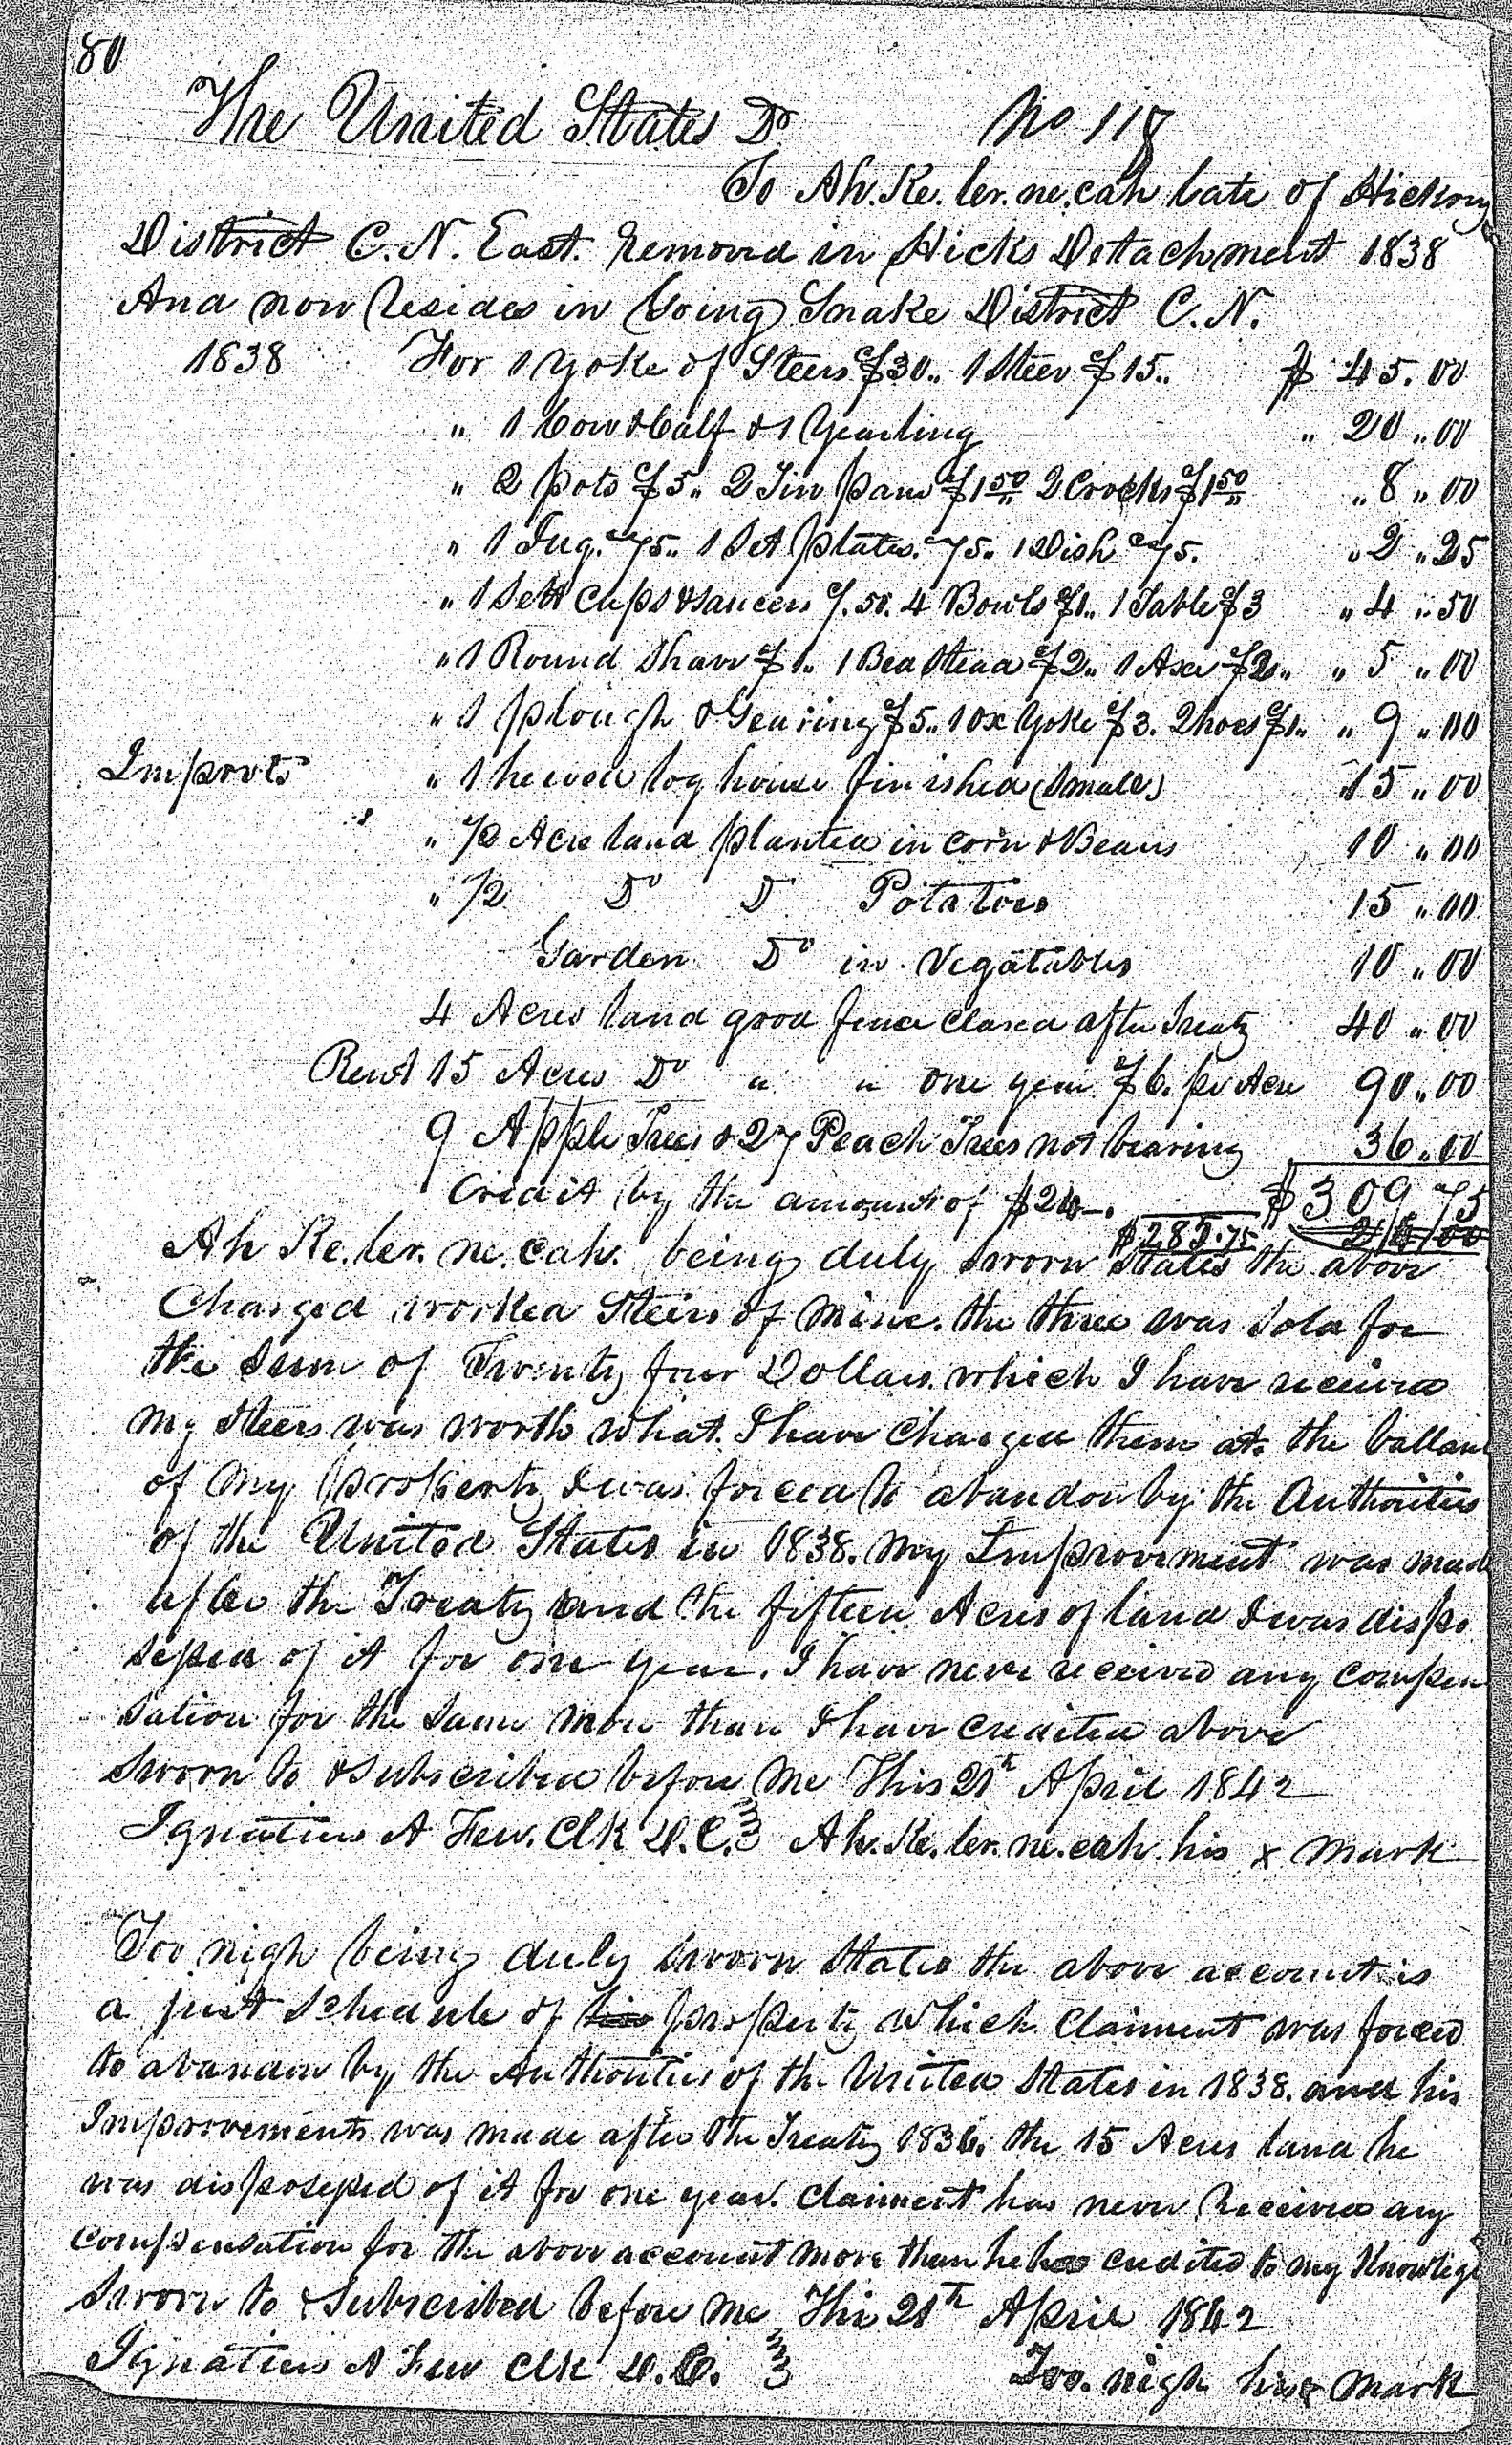 80
The United States Dr No 118
To Ah.Ke.ler.ne.cah late of Hickory
District C.N. East. Removed in Hicks Detachment 1838
And now Resides in Going Snake District C.N.
1838 For 1 Yoke of Steers $30.. 1 Steer $15.. $ 45.00
" 1 Cow & Calf & 1 Yearling " 20 " 00
" 2 pots $5.. 2 Tin pans $1 50 2 Crocks $1 50 " 8 " 00
" 1 Jug. 75.. 1 Set plates. 75.. 1 Dish 75. " 2 " 25
" 1 Sett cups & saucers .50. 4 Bowls $1.. 1 Table $3 " 4 " 50
" 1 Round Shave $1.. 1 Bedstead $2.. 1 Axe $2.. " 5 " 00
" 1 plough & Gearing $5.. 1 Ox Yoke $3. 2 hoes $1.. " 9 " 00
Improvts " 1 hewed log house finished (small) " 15 " 00
" 1/2 Acre land planted in corn & Beans 10 " 00
" 1/2 Do Do Potatoes 15 " 00
Garden Do in Vegatables 10 " 00
4 Acres land good fence clared after Treaty 40 " 00
Rent 15 Acres Do " " one year $6. pr Acre 90 " 00
9 Apple Trees & 27 Peach Trees not bearing 36 " 00
Credit by the amount of $24-. $309.75
$285.75 24 00
Ah Ke.ler.ne.cah. being duly sworn states the above
Charged worked Steers of mine. the three was sold for
the sum of Twenty four Dollars. which I have received
my steers was worth what. I have charged them at. the ballanc
of my property I was forced to abandon by the Authorities
of the United States in 1838. my Improvement was made
after the Treaty and the fifteen Acres of land I was dispo
sessed of it for one year. I have neve received any compen
sation for the same more than I have credited above
Sworn to & subscribed before me This 21th April 1842
Ignatius A Few. Clk D.C. Ah.Ke.ler.ne.cah. his x mark
Too nigh being duly sworn states the above account is
a just schedule of his property which claiment was forced
to abandon by the Authorities of the United States in 1838. and his
Improvements was made after the Treaty 1836. the 15 Acres land he
was disposessed of it for one year. claiment has never Received any
compensation for the above account more than he has credited to my Knowlege
Sworn to & Subscribed before me This 21th April 1842
Ignatius A Few Clk D.C. Too. nigh his x mark